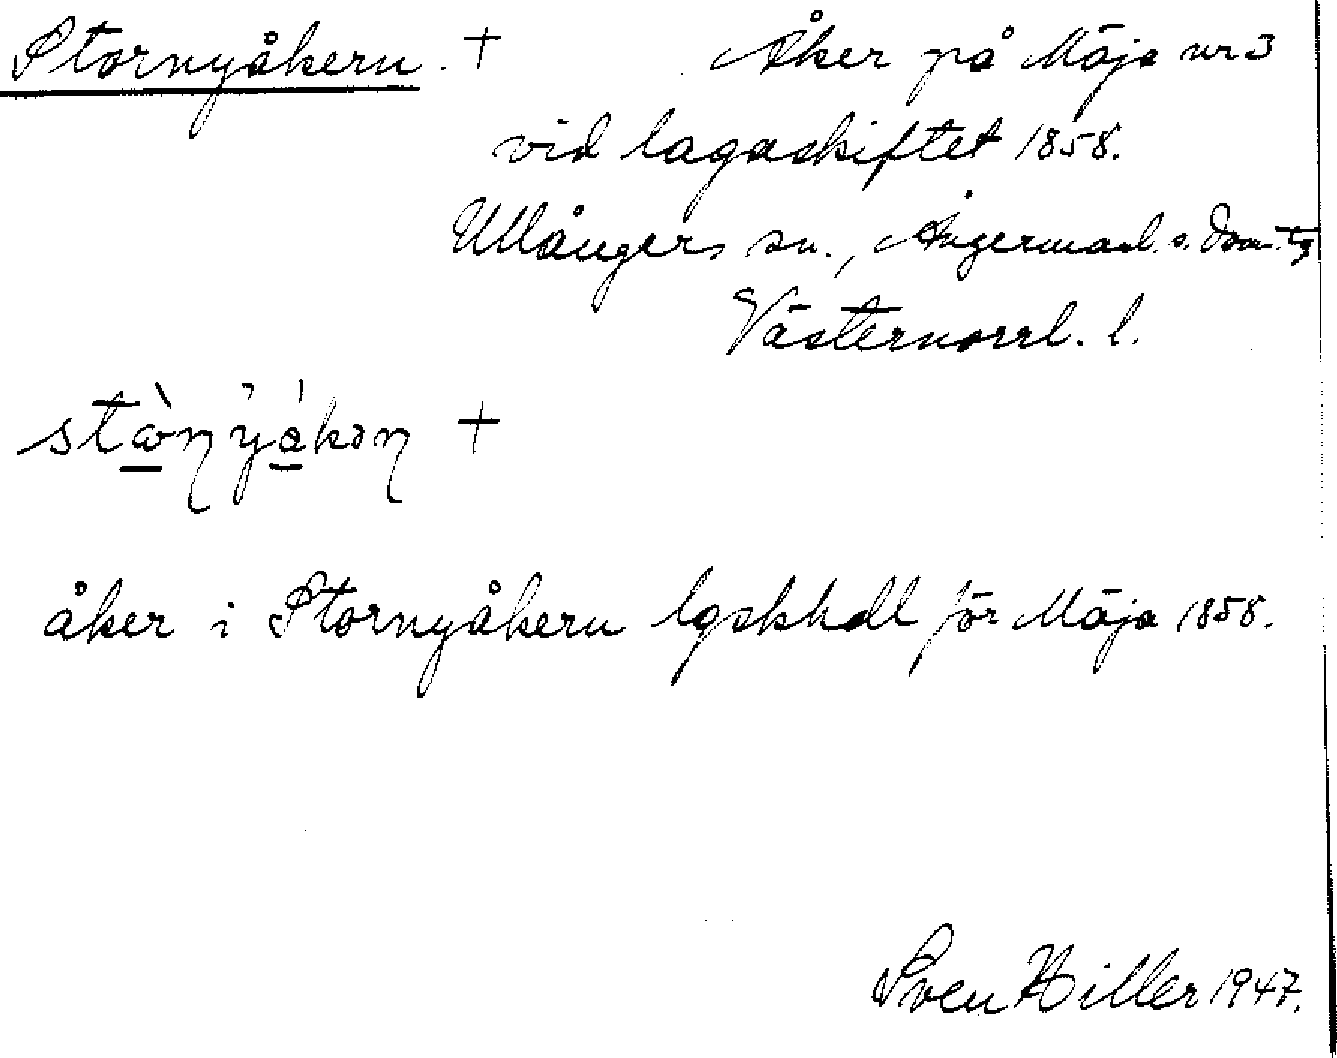 Stornyåkern + Åker på Mäja nr 3
vid lagaskiftet 1858.
Ullångers sn., Ångermanl. s. doms.
Västernorrl. l.
+
åker i Stornyåkern lgskhdl för Mäja 1858.
Sven Hiller 1947.